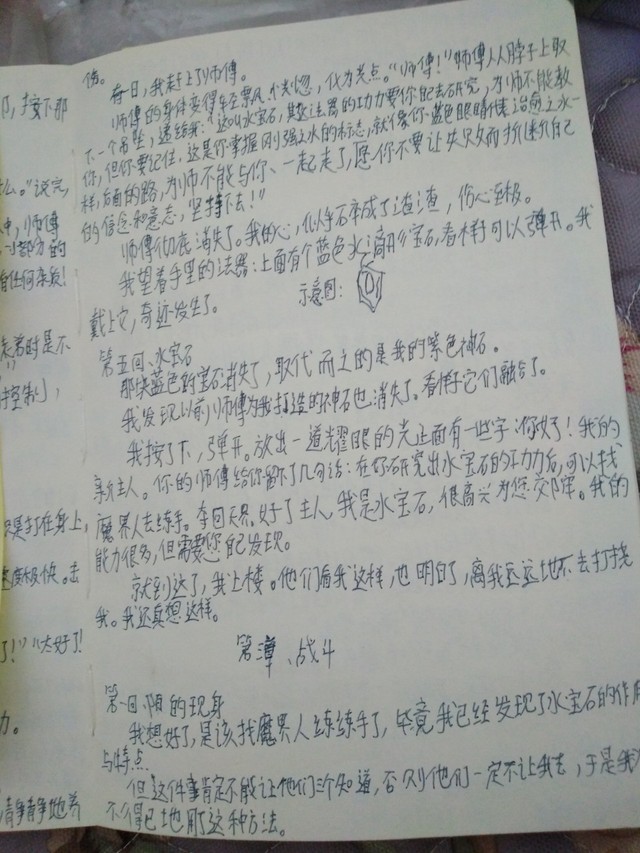 伤。
有一日，我赶上了师傅。
师傅的身体变得轻飘飘、恍惚，化为光点。“师傅！”师傅从脖子上取
下一个吊坠，递给我：“这叫水宝石，其这法器的功力要你自己去研究，为师不能教
你，但你要记住，这是你掌握刚强之水的标志，就像你蓝色眼睛是治愈之水一
样，后面的路，为师不能与你、一起走了，愿你不要让失败而折断自己
的信念和意志，坚持下去！”
师傅彻底消失了。我的心，似将石卒成了渣渣，伤心至极。
我望着手里的法器：上面有个蓝色水滴形宝石，看样子可以弹开。我
戴上它，奇迹发生了。
示意图：
第五回、水宝石
那块蓝色的宝石消失了，取代而之的是我的紫色神石。
我发现以前师傅为我打造的神石也消失了。看样子它们融合了。
我按了下，弹开。放出一道耀眼的光正面有一些字：你好！我的
新主人。你的师傅给你留了几句话：在好好研究出水宝石的功力后，可以找
魔界人去练手。李回天界。好了主人，我是水宝石，很高兴为您效。我的
能力很多，但需要您自己发现。
就到这了，我上楼。他们看我这样，也明白了，离我远远地不去打扰
我。我还真想这样。
第章、战斗
第一回、阴的现身
我想好了，是该找魔界人练练手了，毕竟我已经发现了水宝石的作用
与特点。
但这件事肯定不能让他们三个知道，否则他们一定不让我去，于是我
不得已地用这种方法。
那，接下那
么。”说完，
中，师傅
部分的
有任何杂质！
表若时是不
控制，
只是打在身上，
速度极快。击
了！”“太好了！
力。
清清静静地养